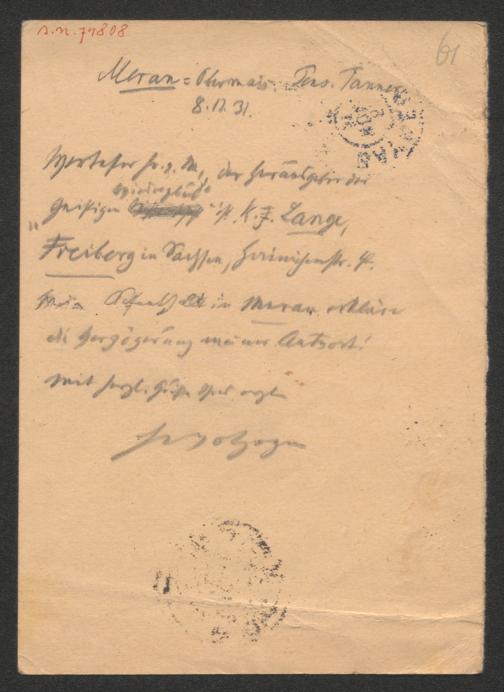 61
Meran = Obermais. Pens. Tanner
8.12.31.
Werter Hr. v. M., der Herausgeber der
"Geistigen Wiedergeburt" ist K. F. Lange,
Freiberg in Sachsen, Hainichenstr. 4.
Mein Aufenthalt in Meran erkläre
die Verzögerung meiner Antwort!
Mit herzl. Gruß Ihr ergb.